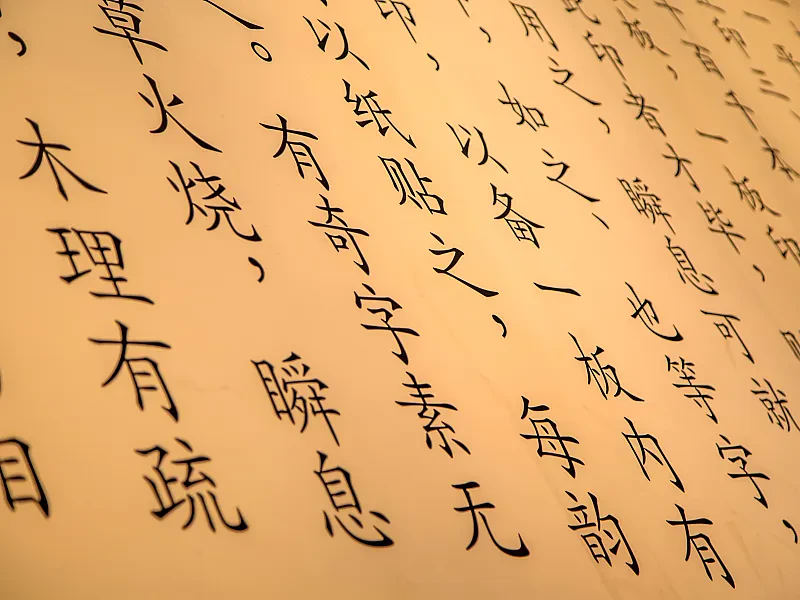 印三
十百千本
板，一板印
此印者才毕，
用之，瞬息可就
，如之、也等字，
印，以备一板内有
以纸贴之，每韵
。有奇字素无
草火烧，瞬息
，木理有疏